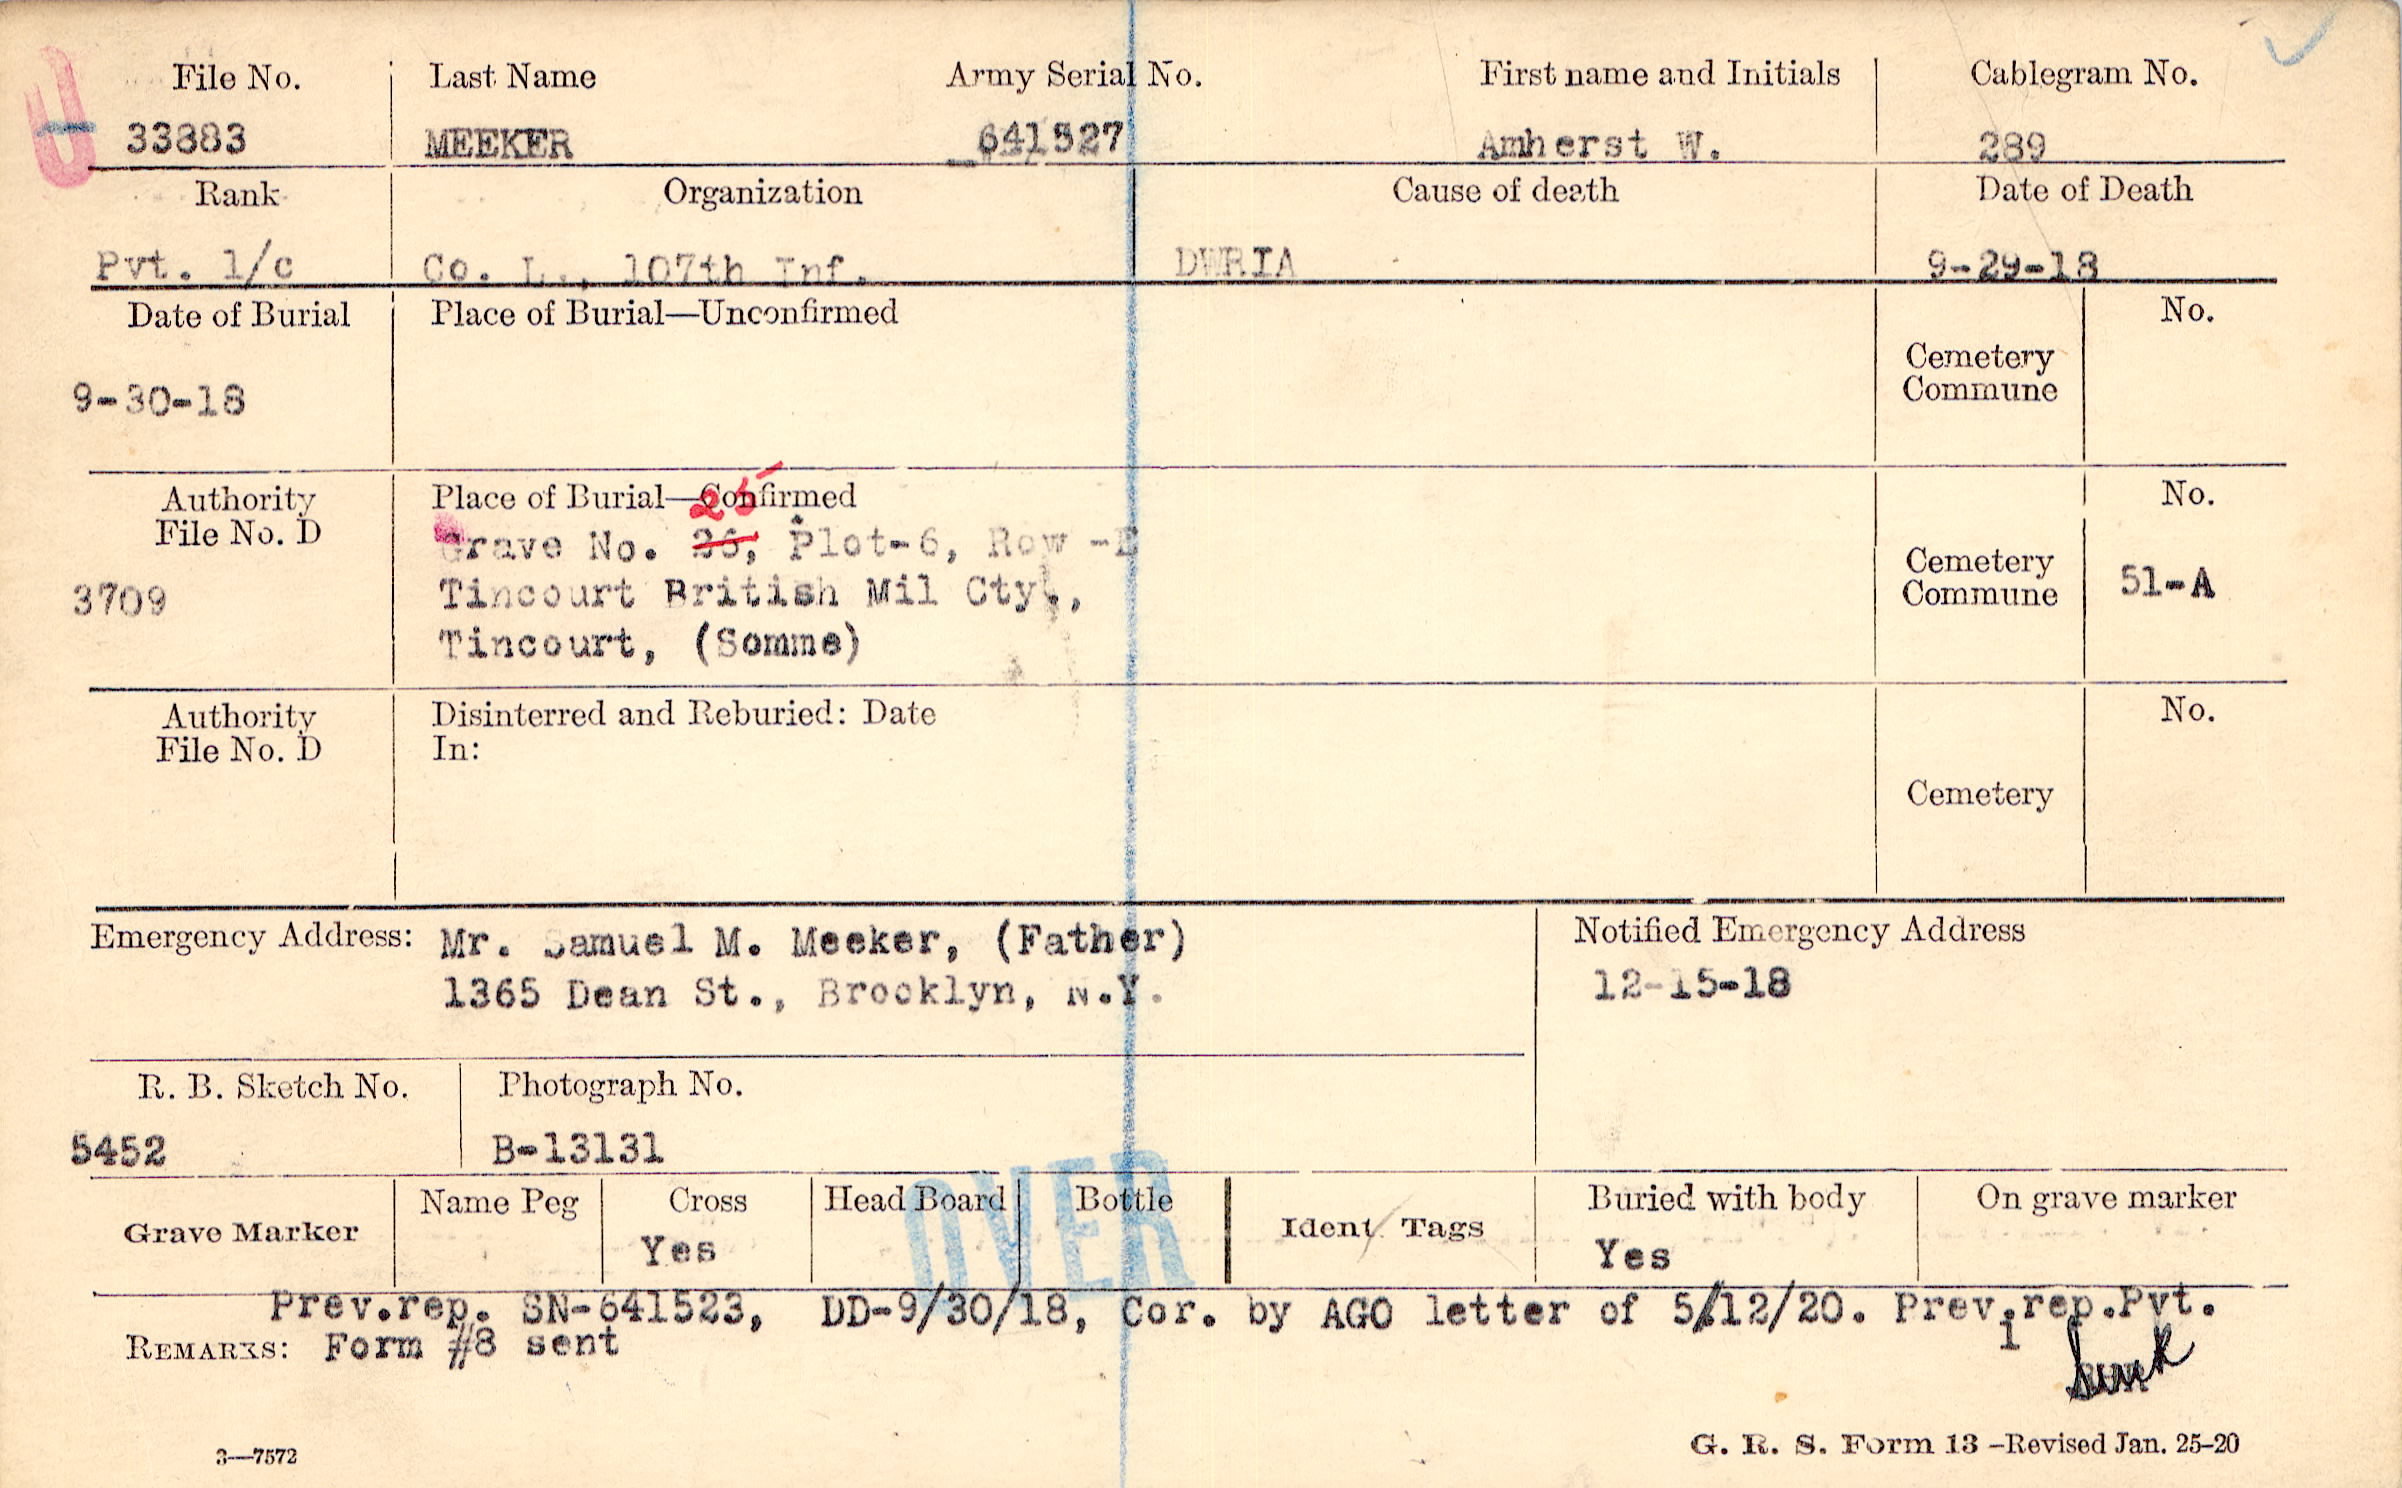 File No. Last Name Army Serial No. First name and Initials Cablegram No.
33883 MEEKER 641527 Amherst W. 289
Rank Organization Cause of death Date of Death
Pvt. 1/c Co. L., 107th Inf. DWRIA 9-29-18
Date of Burial Place of Burial—Unconfirmed No.
Cemetery
Commune
9-30-18
Authority Place of Burial—Confirmed No.
File No. D
25
Grave No. 26, Plot-6, Row -E
Cemetery
Commune
3709 Tincourt British Mil Cty., 51-A
Tincourt, (Somme)
Authority Disinterred and Reburied: Date No.
File No. D In:
Cemetery
Emergency Address: Mr. Samuel M. Meeker, (Father) Notified Emergency Address
1365 Dean St., Brooklyn, N.Y. 12-15-18
R. B. Sketch No. Photograph No.
5452 B-13131
OVER
Grave Marker Name Peg Cross Head Board Bottle Ident. Tags Buried with body On grave marker
Yes Yes
Prev.rep. SN-641523, DD-9/30/18, Cor. by AGO letter of 5/12/20. Prev.rep.Pvt.
REMARKS: Form #8 sent
3—7572 G. R. S. Form 13 -Revised Jan. 25-20